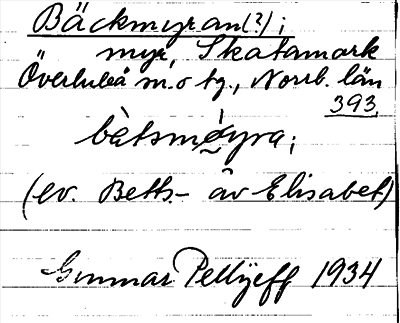 Bäckmyran(?);
myr, Skatamark
Överluleå sn. o tg., Norrb. län
393.
bètsmyra;
(ev. Betts- av Elisabet)
Gunnar Pellijeff 1934